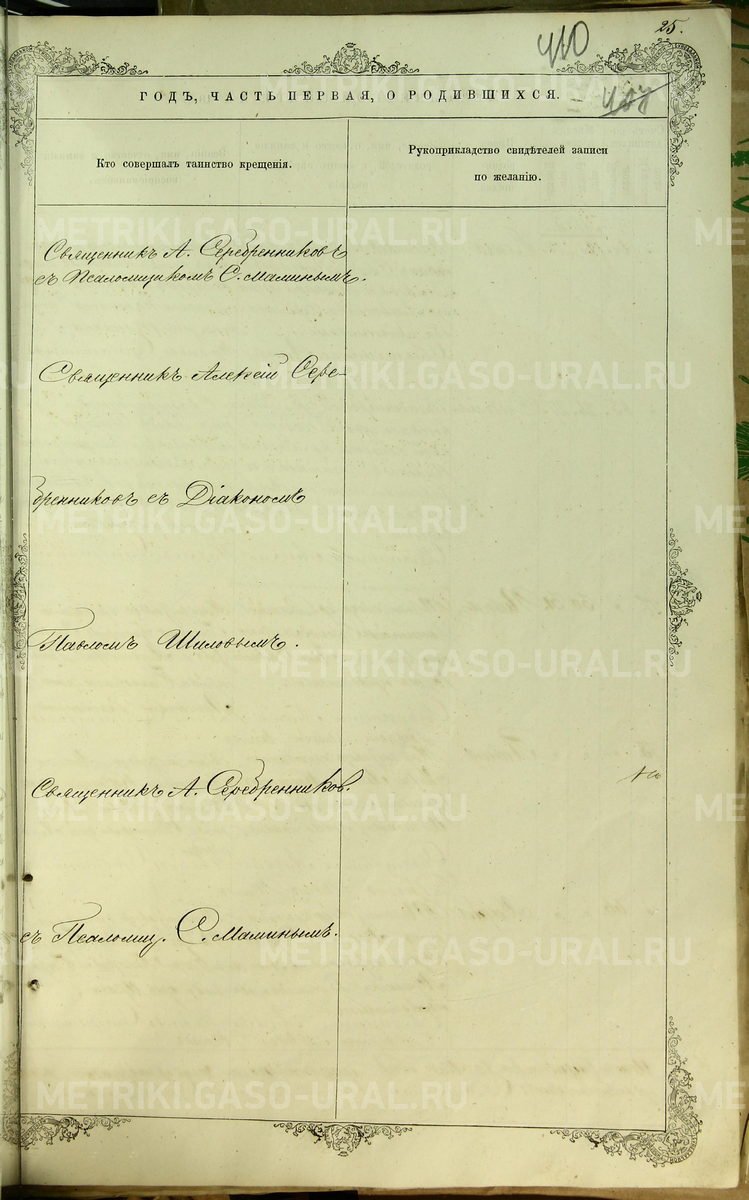 25.
410
407
ГОДЪ, ЧАСТЬ ПЕРВАЯ, О РОДИВШИХСЯ.
Кто совершалъ таинство крещенія.
Рукоприкладство свидѣтелей записи
по желанію.
Священникъ А. Серебренниковъ
съ Псаломщикомъ С. Маминымъ.
Священникъ Алексій Сере-
бренниковъ съ Діакономъ
Павломъ Шиловымъ.
Священникъ А. Серебренников.
съ Псаломщ. С. Маминымъ.
METRIKI.GASO-URAL.RU